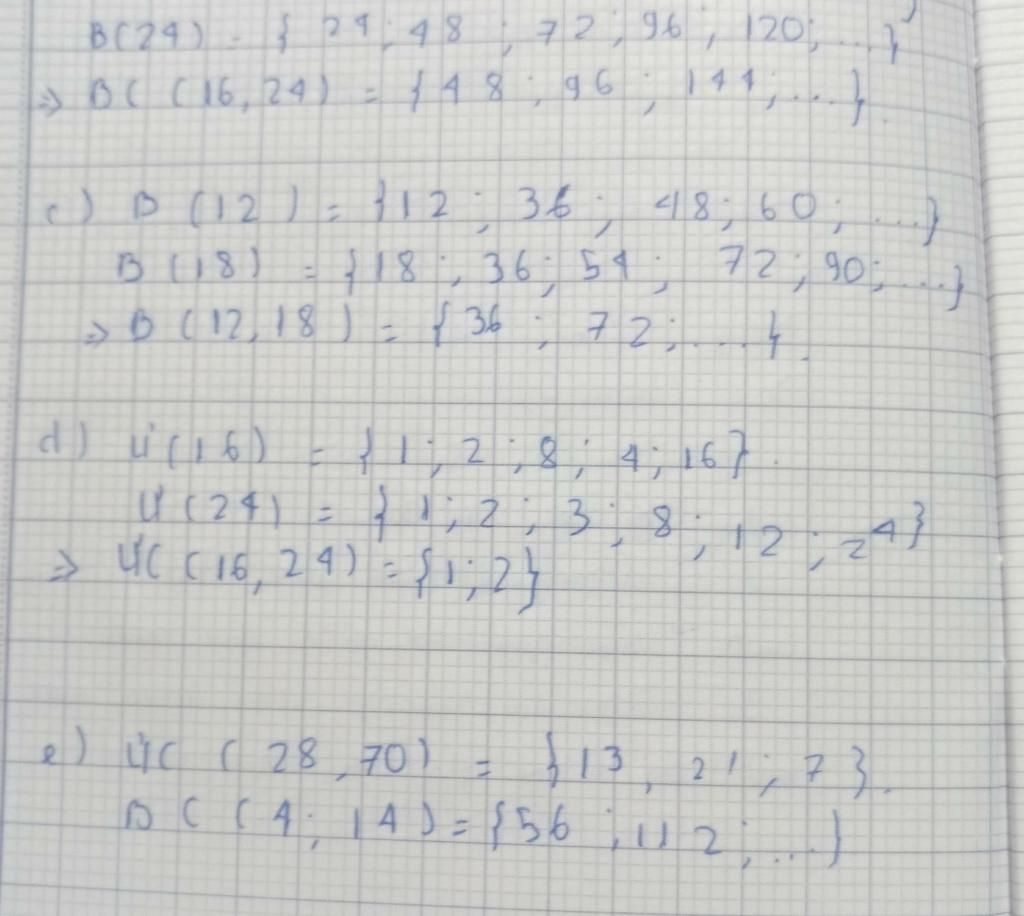 B(24) = { 24; 48 ; 72 ; 96 ; 120; ...}
=> BC (16,24) = {48 ; 96 ; 144; ...}.
c) B (12) = {12 ; 36 ; 48; 60 ; ...}
B (18) = {18 ; 36; 54 ; 72 ; 90; ...}
=> B (12,18) = {36 ; 72; ...}.
d) Ư(16) = {1 ; 2 ; 8 ; 4 ; 16}.
Ư(24) = {1 ; 2 ; 3 ; 8 ; 12 ; 24}
=> ƯC (16,24) = {1 ; 2}
e) ƯC (28,70) = {13, 21 ; 7}.
BC (4; 14) = {56 ; 112 ; ...}